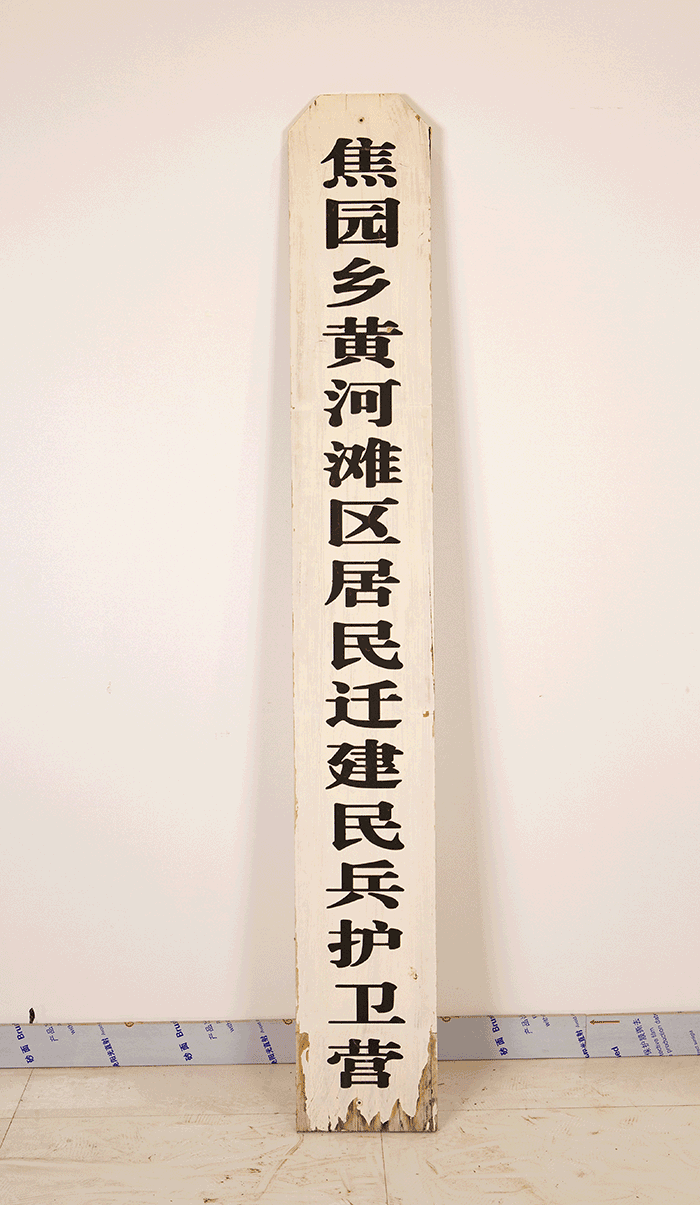 焦园乡黄河滩区居民迁建民兵护卫营